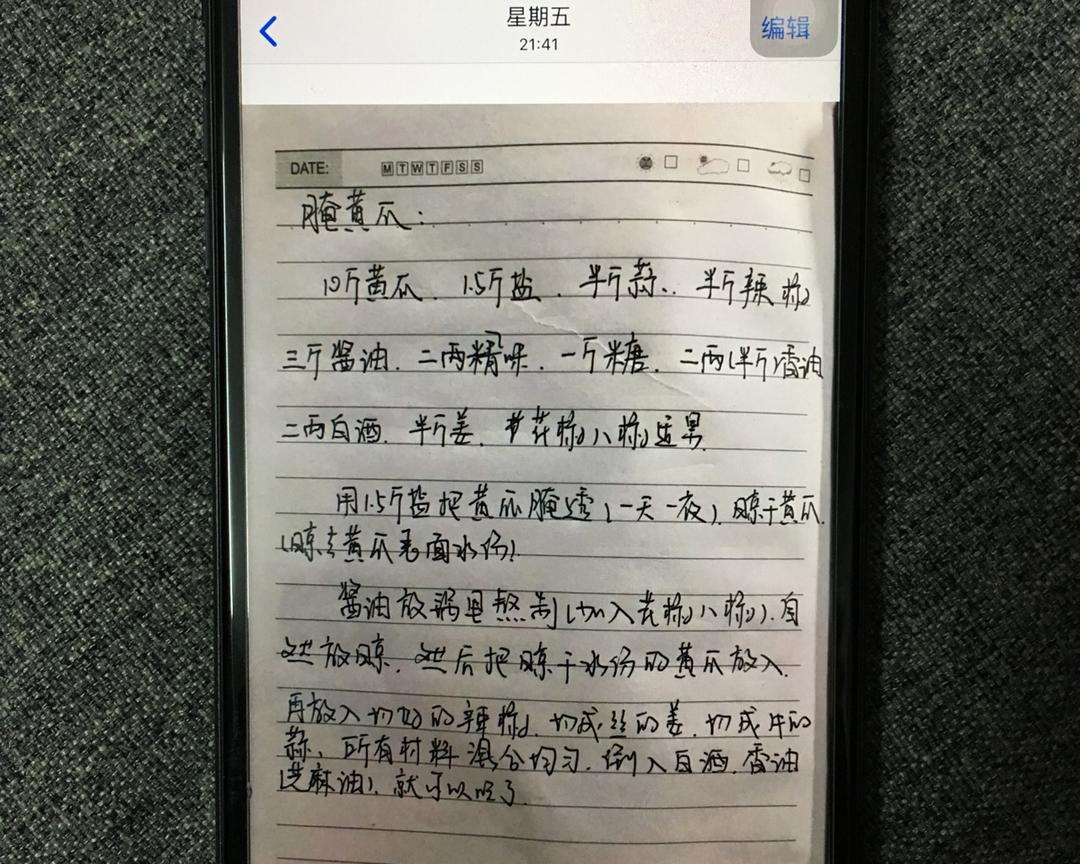 星期五
21:41
编辑
DATE: M T W T F S S
腌黄瓜:
10斤黄瓜、1.5斤盐、半斤蒜、半斤辣椒
三斤酱油、二两味精、一斤糖、二两(半斤)香油
二两白酒、半斤姜、花椒八椒适果
用1.5斤盐把黄瓜腌透(一天一夜)、晾干黄瓜.
(晾去黄瓜表面水份)
酱油放锅里熬制(加入花椒八椒)、自
然放晾、然后把晾干水份的黄瓜放入、
再放入切好的辣椒、切成丝的姜、切成片的
蒜、所有材料混合均匀、倒入白酒、香油
(芝麻油)、就可以吃了.